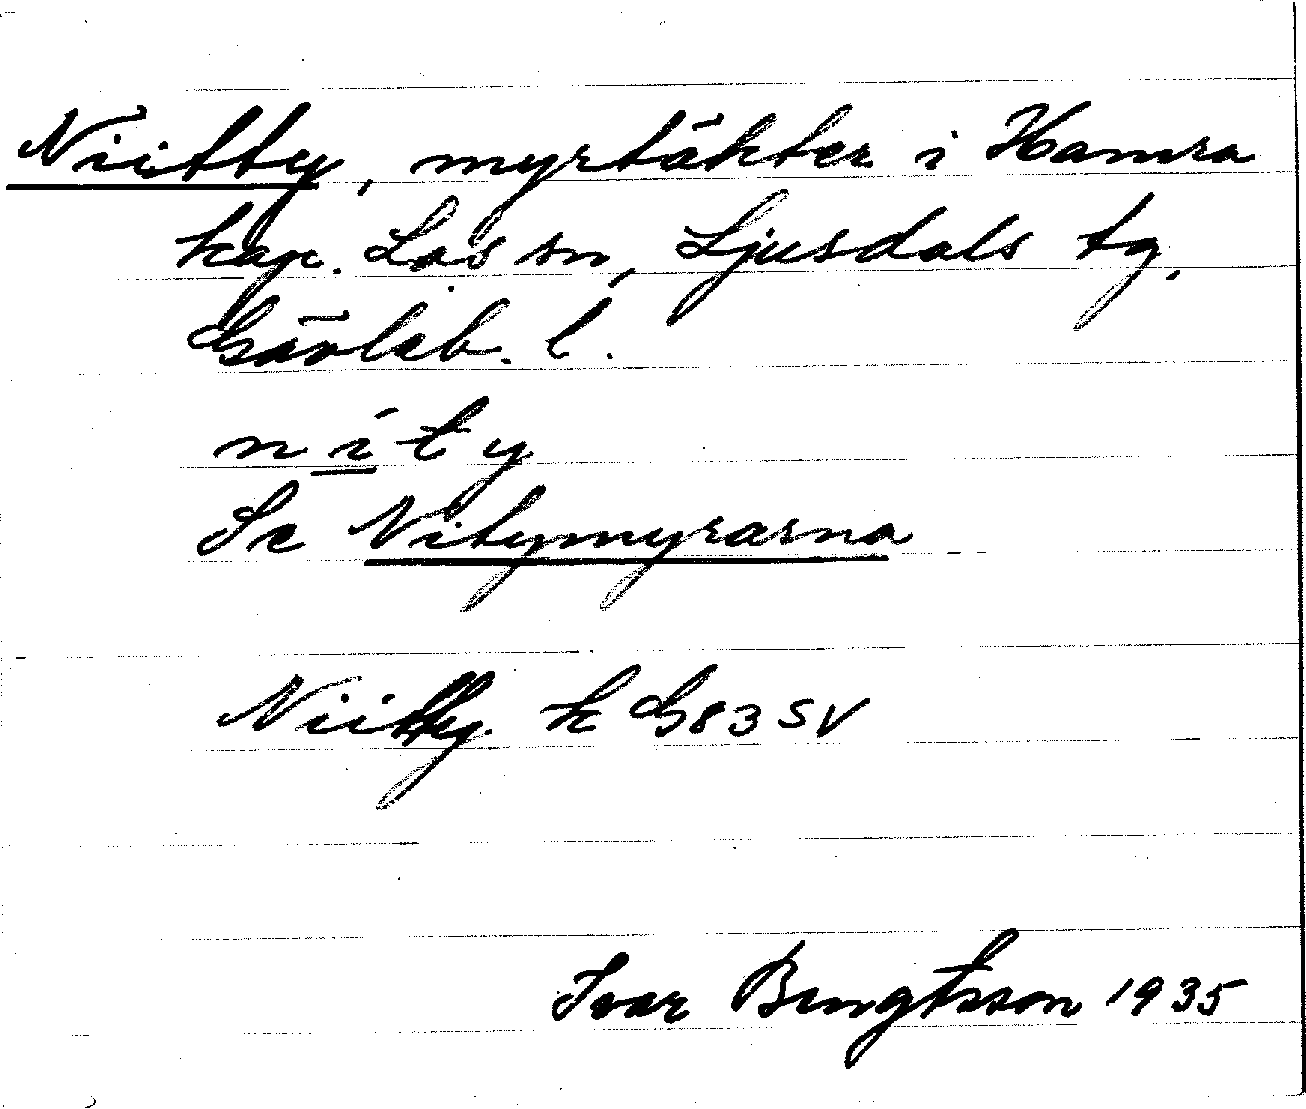 Niitty, myrtäkter i Hamra
kap. Los sn, Ljusdals tg,
Gävleb. l.
nity
Se Nitymyrarna
Niitty. k G83SV
Ivar Bengtsson 1935